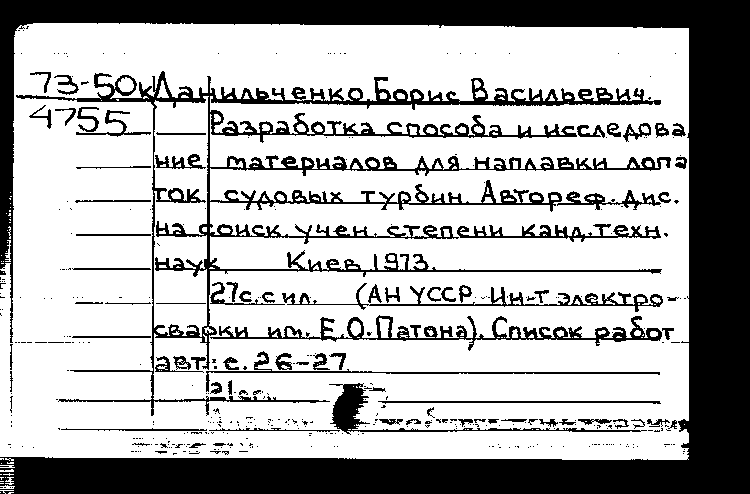 73-50к Данильченко, Борис Васильевич.
4755 Разработка способа и исследова
ние материалов для наплавки лопа
ток судовых турбин. Автореф. дис.
на соиск. учен. степени канд. техн.
наук. Киев, 1973.
27с. с ил. (АН УССР Ин-т электро-
сварки им. Е.О.Патона). Список работ
авт.: с. 26-27
21см.